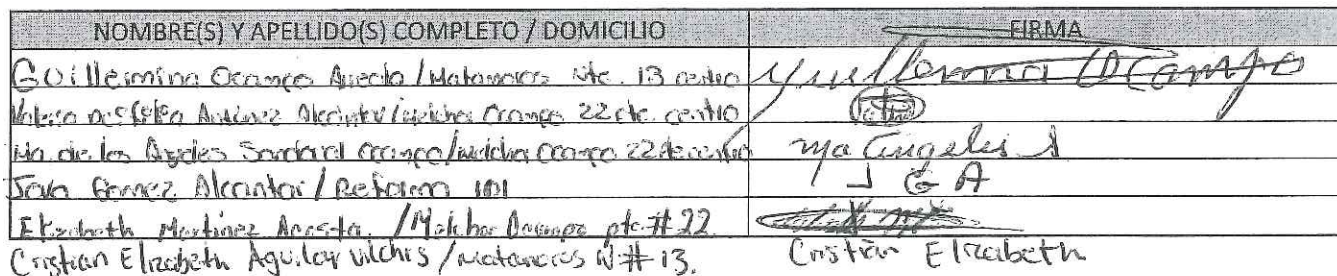 NOMBRE(S) Y APELLIDO(S) COMPLETO / DOMICILIO FIRMA
Guillermina Ocampo / Matamoros Nte. 13 centro Guillermina Ocampo
Alcantar / Melchor Ocampo 22 pte. centro
Ma. de los Angeles Sandoval Ocampo / Melchor Ocampo 22 pte centro Ma Angeles S
Gomez Alcantar / Reforma 101 J G A
Elizabeth Martinez Acosta. / Melchor Ocampo pte. # 22
Cristian Elizabeth Aguilar Vilchis / Matamoros N # 13. Cristian Elizabeth